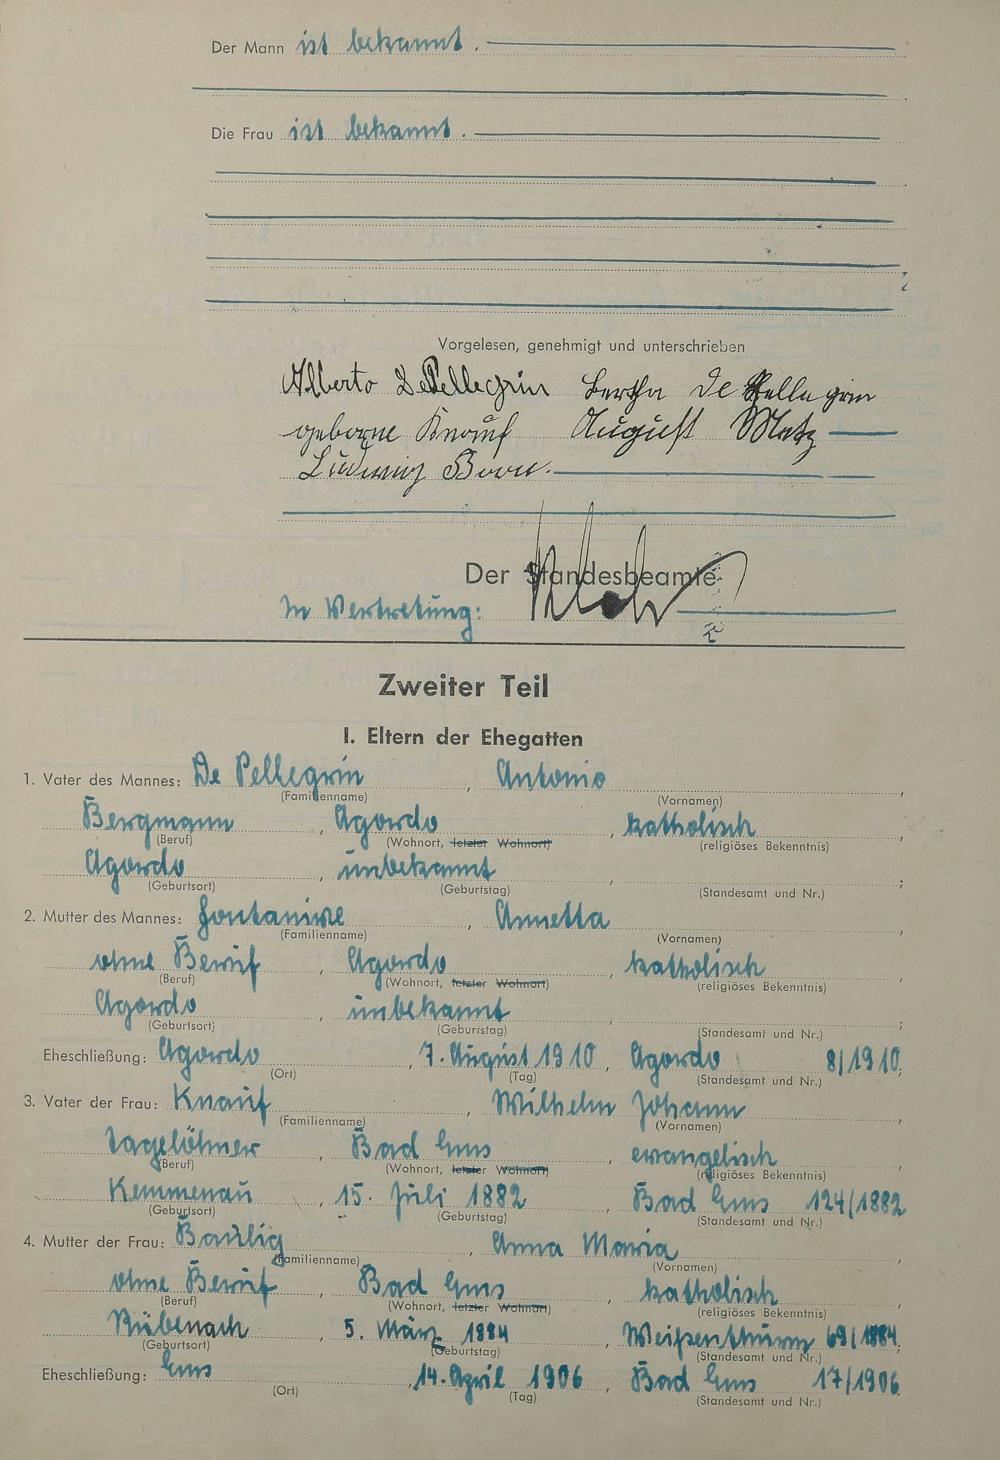 Der Mann ist bekannt.
Die Frau ist bekannt.
Vorgelesen, genehmigt und unterschrieben
Alberto De Pellegrin Bertha De Pellegrin
geborne Knauf August Metz
Ludwig Born.
Der Standesbeamte
In Vertretung:
Zweiter Teil
I. Eltern der Ehegatten
1. Vater des Mannes: De Pellegrin, Antonio,
(Familienname) (Vornamen)
Bergmann, Agordo, katholisch,
(Beruf) (Wohnort, letzter Wohnort) (religiöses Bekenntnis)
Agordo, unbekannt, ;
(Geburtsort) (Geburtstag) (Standesamt und Nr.)
2. Mutter des Mannes: Annetta,
(Familienname) (Vornamen)
ohne Beruf, Agordo, katholisch,
(Beruf) (Wohnort, letzter Wohnort) (religiöses Bekenntnis)
Agordo, unbekannt, ;
(Geburtsort) (Geburtstag) (Standesamt und Nr.)
Eheschließung: Agordo, 7. August 1910, Agordo 8/1910;
(Ort) (Tag) (Standesamt und Nr.)
3. Vater der Frau: Knauf, Wilhelm Johann,
(Familienname) (Vornamen)
Tagelöhner, Bad Ems, evangelisch,
(Beruf) (Wohnort, letzter Wohnort) (religiöses Bekenntnis)
Kemmenau, 15. Juli 1882, Bad Ems 124/1882;
(Geburtsort) (Geburtstag) (Standesamt und Nr.)
4. Mutter der Frau: Baulig, Anna Maria,
(Familienname) (Vornamen)
ohne Beruf, Bad Ems, katholisch,
(Beruf) (Wohnort, letzter Wohnort) (religiöses Bekenntnis)
Rübenach, 5. März 1884, Weißenthurm 69/1884;
(Geburtsort) (Geburtstag) (Standesamt und Nr.)
Eheschließung: Ems, 14. April 1906, Bad Ems 17/1906.
(Ort) (Tag) (Standesamt und Nr.)